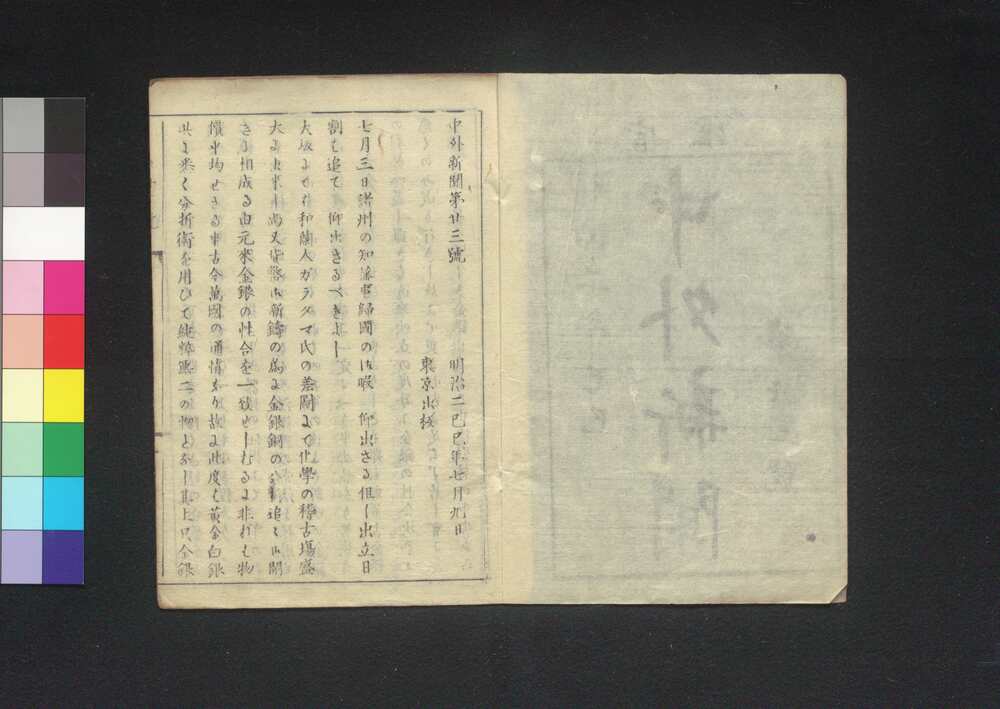 中外新聞第廿三號 明治二己巳年七月九日
東京出板
七月三日諸州の知藩事歸國の御暇 仰出さる但し出立日
割も追て 仰出さるべきよし
大坂よて和蘭人ガラタマ氏の差圖よて化學の稽古場盛
大よ出来し尚又貨幣御新鑄の為よ金銀銅の分析追々御開
きよ相成る由元来金銀の性合を一致せしむるよ非れも物
價平均せざる事古今萬國の通情なり故よ此度も黄金白銀
共よ悉く分析術を用ひて純粋無二の物となし其上只金銀
中外新聞